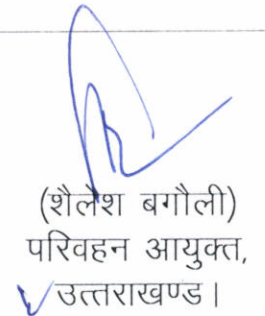 (शैलेश बगौली)
परिवहन आयुक्त,
उत्तराखण्ड।